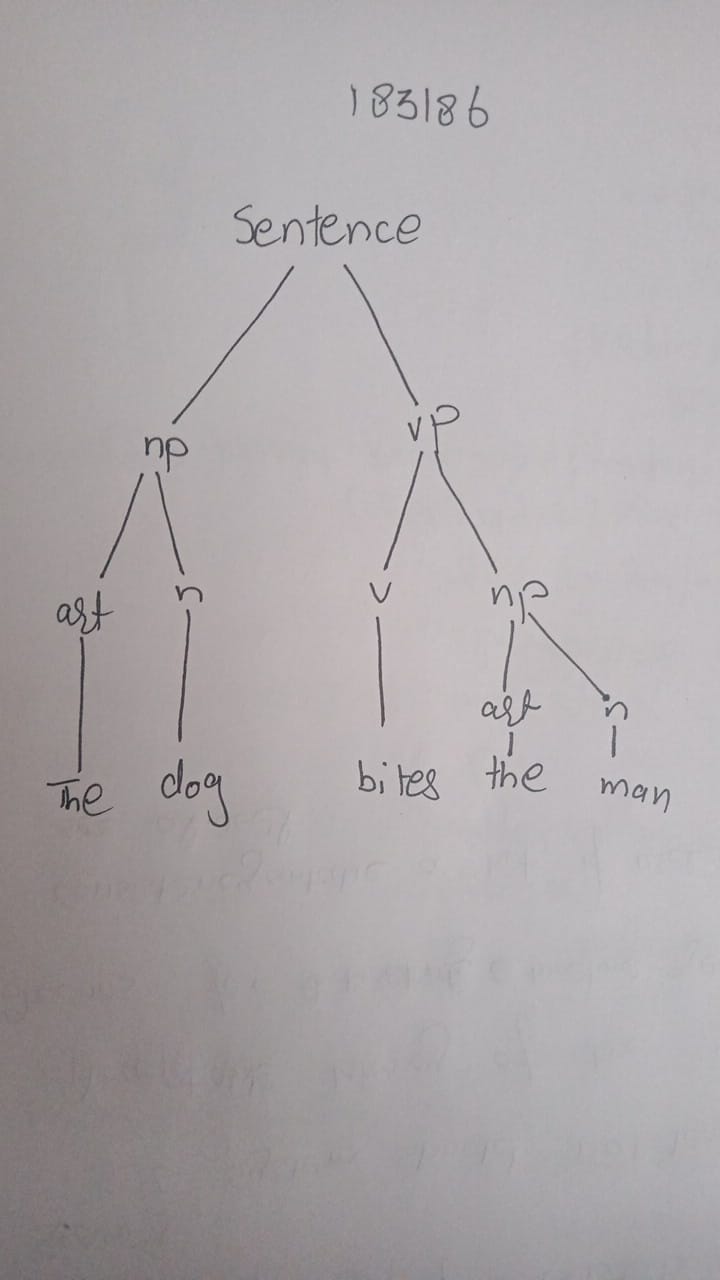 183186
Sentence
np vp
art n v np
art n
The dog bites the man